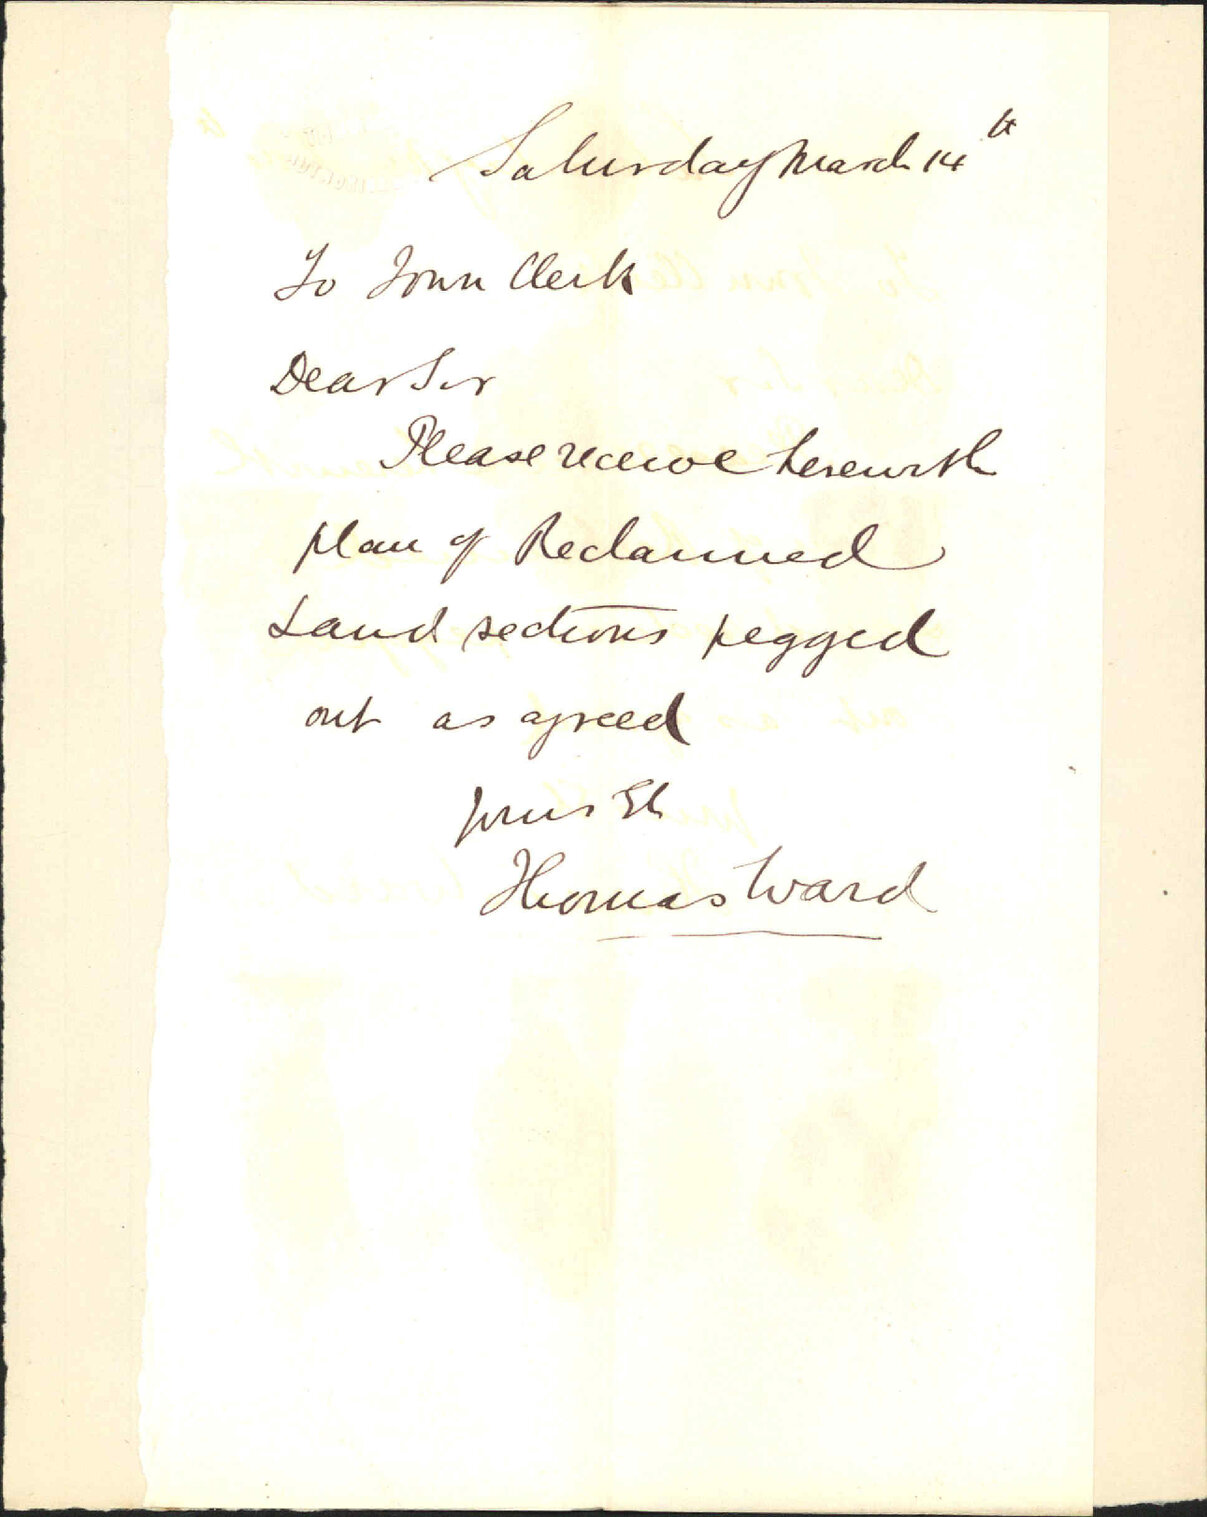 Saturday March 14th
To Town Clerk
Dear Sir
Please receive herewith
plan of Reclaimed
Land sections pegged
out as agreed
yours &c
Thomas Ward